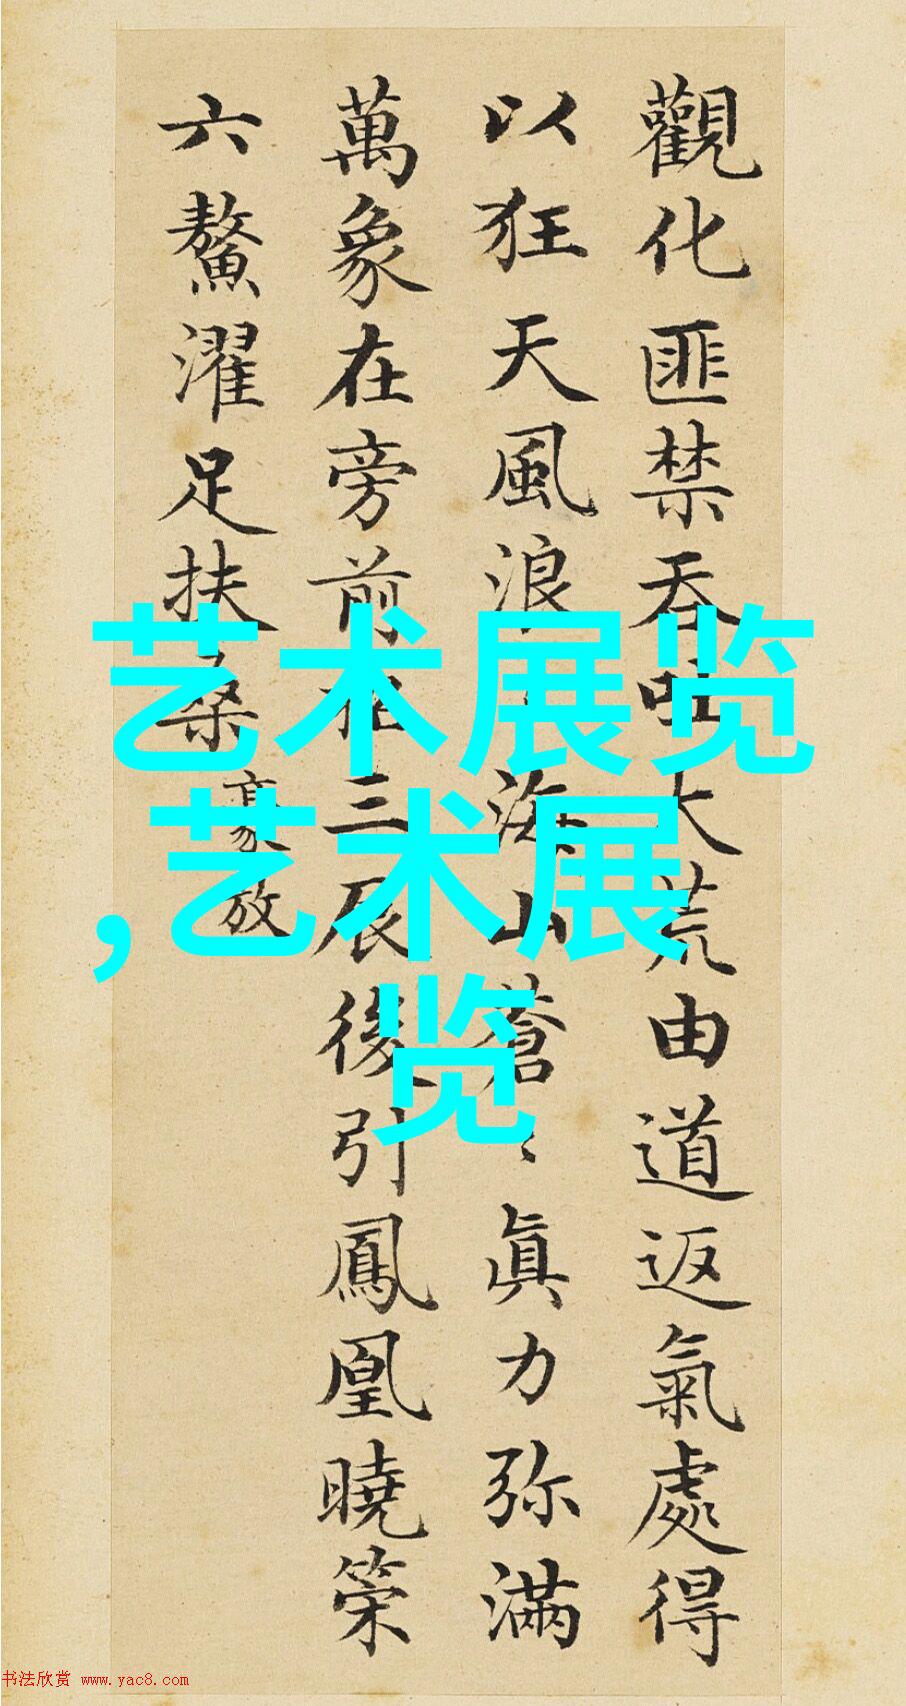 觀化匪禁吞吐大荒由道返氣處得
以狂天風浪〻海山蒼〻眞力弥滿
萬象在旁前招三辰後引鳳凰曉策
六鰲濯足扶桑
豪放
艺术展览
,艺术展
览
书法欣赏 www.yac8.com